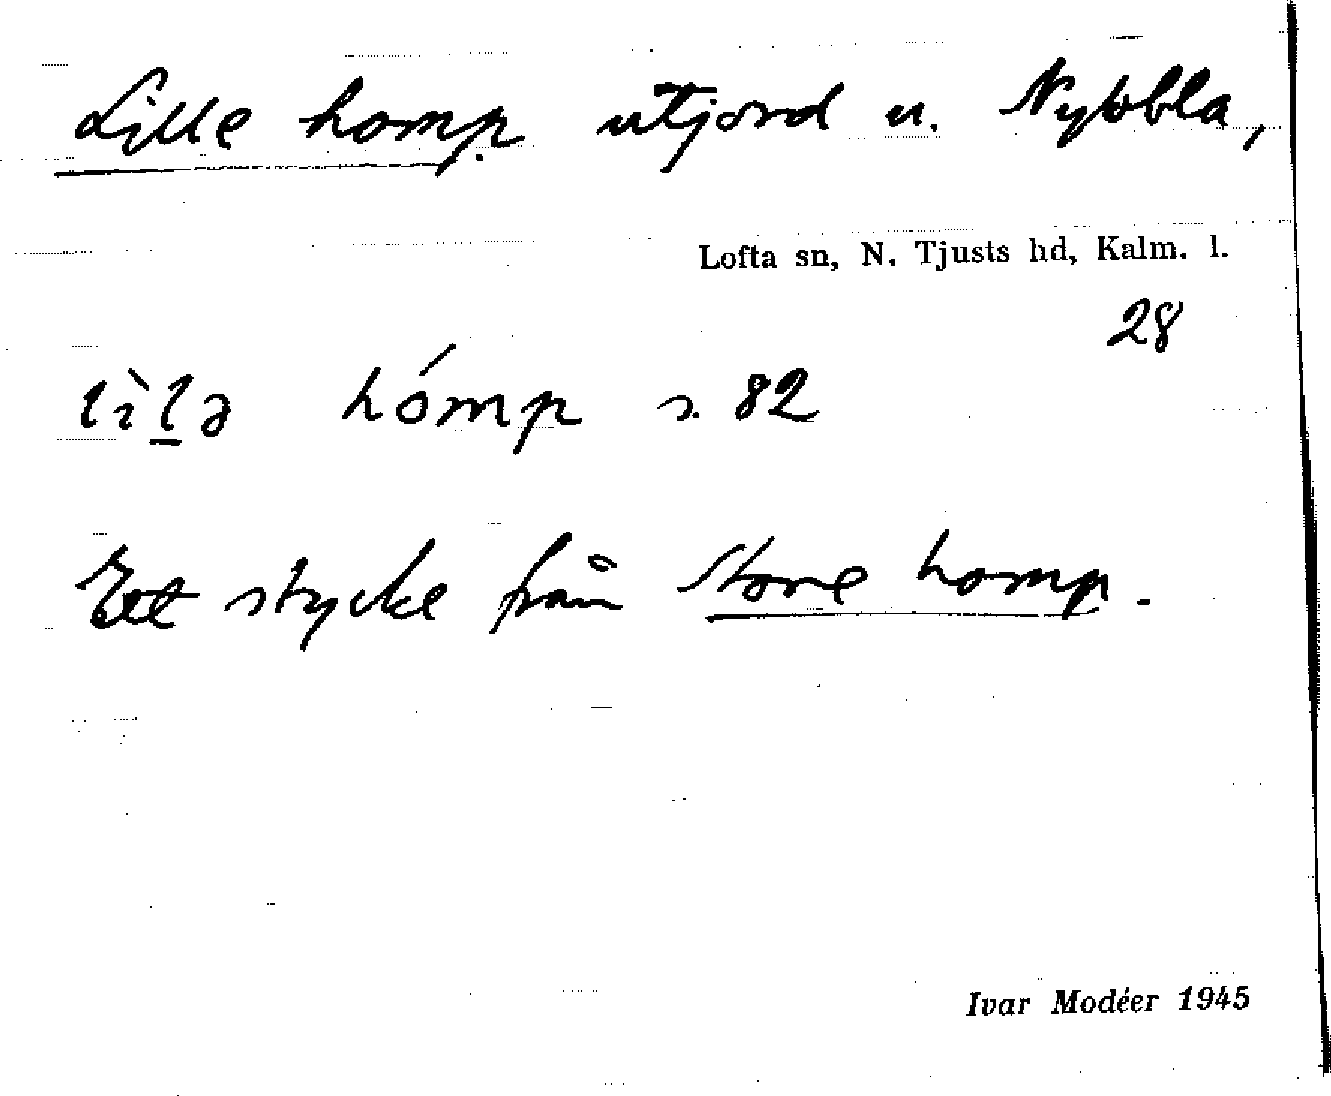 Lille homp utjord u. Nybbla,
Lofta sn, N. Tjusts hd, Kalm. l.
28
lìlə hómp s. 82
Ett stycke från Store homp.
Ivar Modéer 1945